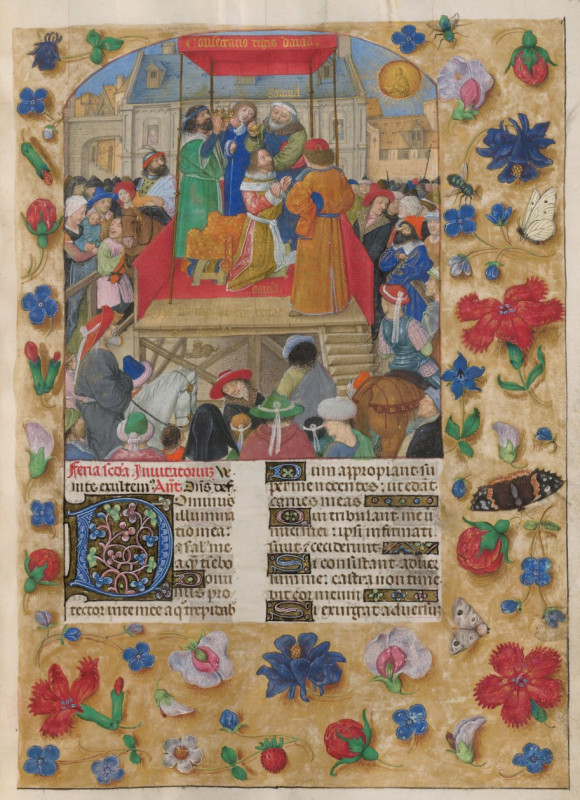 Consecratio regis dauid
Samuel
dauid
Feria scda Inuitatorium Ve
nite exultem⁹ Añ. Dñs def.
Dominus
illumina
tio mea :
& sal⁹ me
a quē tiebo
Domi
nus pro
tector uite mee a q̄ trepidab
Dum appropiant su
per me nocentes : ut edāt
carnes meas
Qui tribulant me i
nimici : ipsi infirmati
sunt & ceciderunt
Si consistant aduer
sum me : castra non time
bit cor meum
Si exurgat aduersus